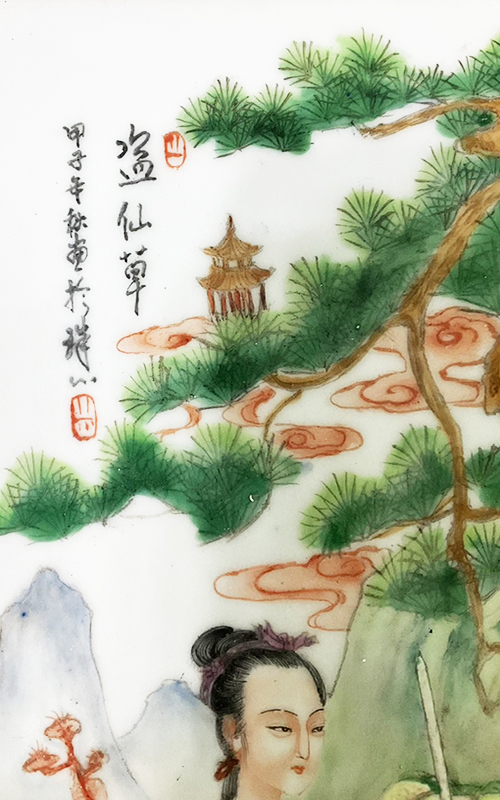 盗仙草
甲子年秋画於珠山